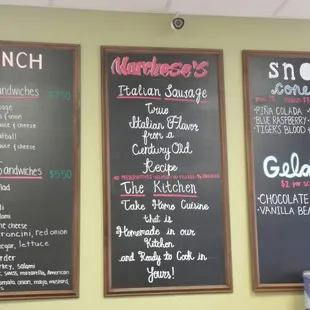 NCH
Sandwiches $7.50
sage
sauce & cheese
eatball
sauce & cheese
Sandwiches $5.50
lad
lami
cheese
red onion
vinegar, lettuce
order
key, salami
swiss, mozzarella, American
tomato, onion, mayo, mustard
Marchese's
Italian Sausage
True
Italian Flavor
from a
Century Old
Recipe
The Kitchen
Take Home Cuisine
that is
Homemade in our
Kitchen
and Ready to Cook in
Yours!
SNO
Cone
PIÑA COLADA
BLUE RASPBERRY
TIGER'S BLOOD
Gela
$2 per sc
CHOCOLATE
VANILLA BEA